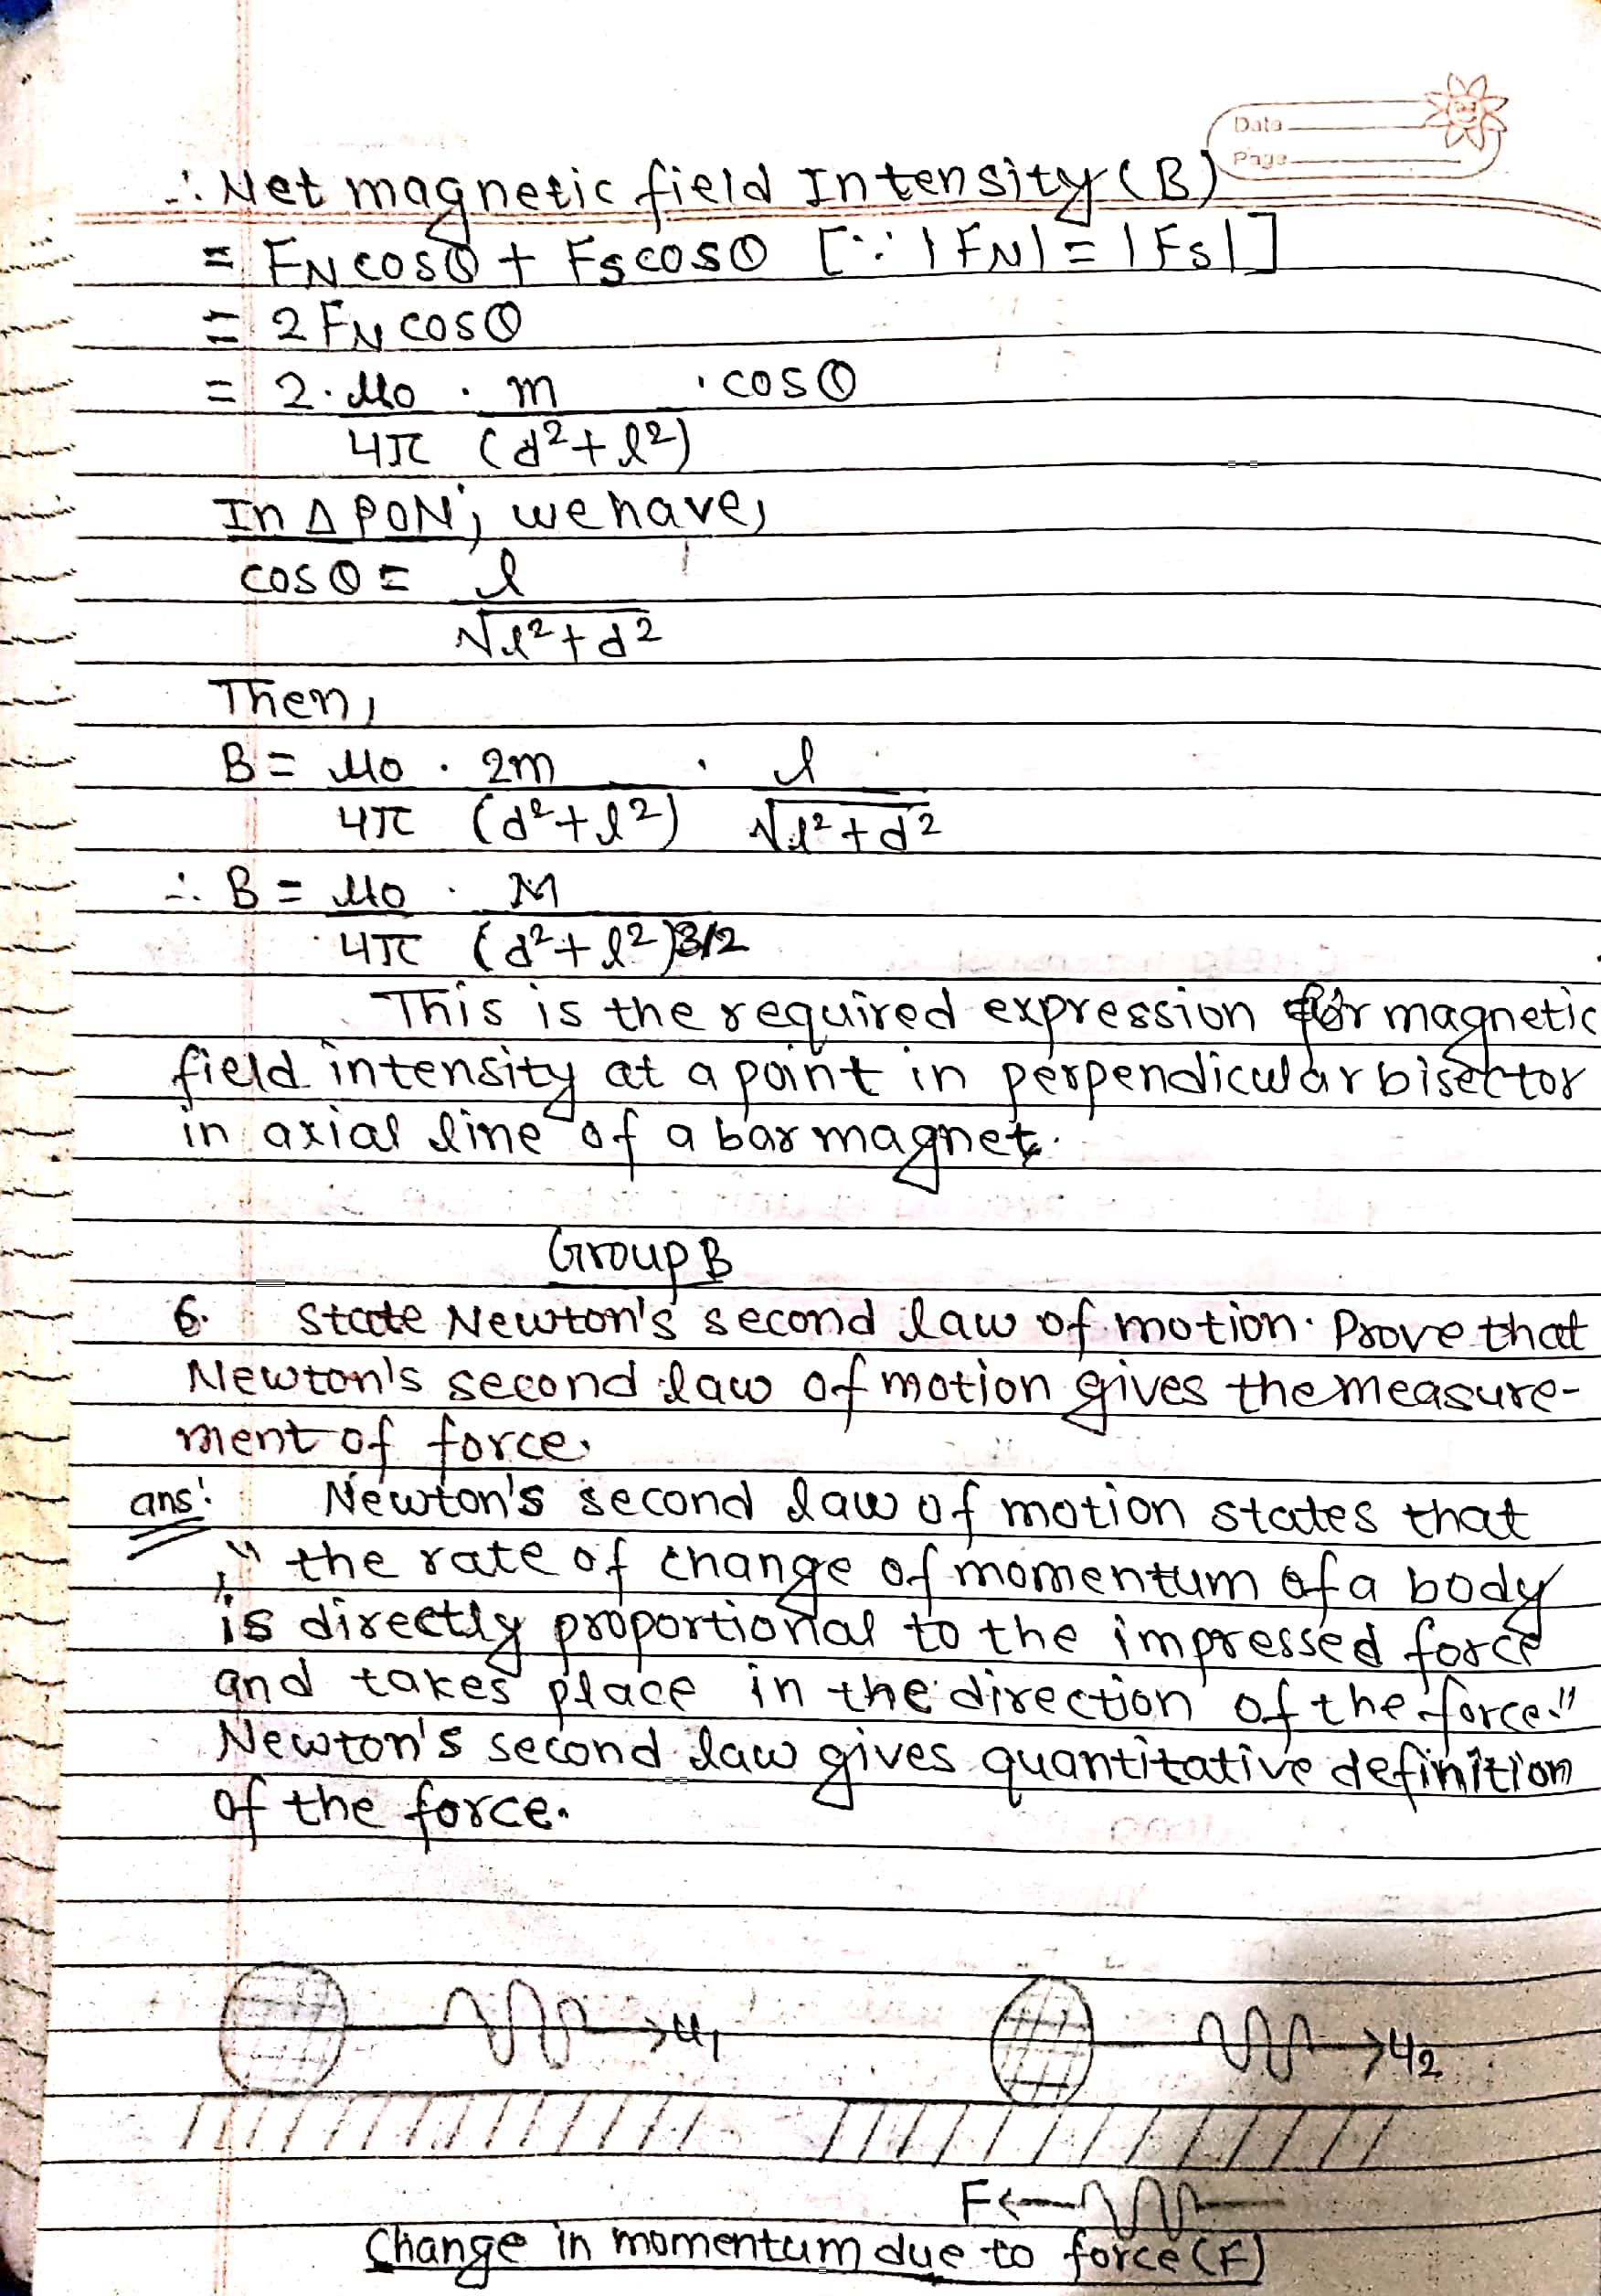 Data
Page
∴ Net magnetic field Intensity (B)
= FN cosθ + Fs cosθ [∵ |FN| = |Fs|]
= 2 FN cosθ
= 2. μ0 . m . cosθ
4π (d²+l²)
In Δ PON; we have,
cosθ = l
√l²+d²
Then,
B = μ0 . 2m . l
4π (d²+l²) √l²+d²
∴ B = μ0 . M
4π (d²+l²)3/2
This is the required expression for magnetic
field intensity at a point in perpendicular bisector
in axial line of a bar magnet.
Group B
6. State Newton's second law of motion. Prove that
Newton's second law of motion gives the measure-
ment of force.
ans: Newton's second law of motion states that
"the rate of change of momentum of a body
is directly proportional to the impressed force
and takes place in the direction of the force."
Newton's second law gives quantitative definition
of the force.
u1 u2
F
Change in momentum due to force (F)